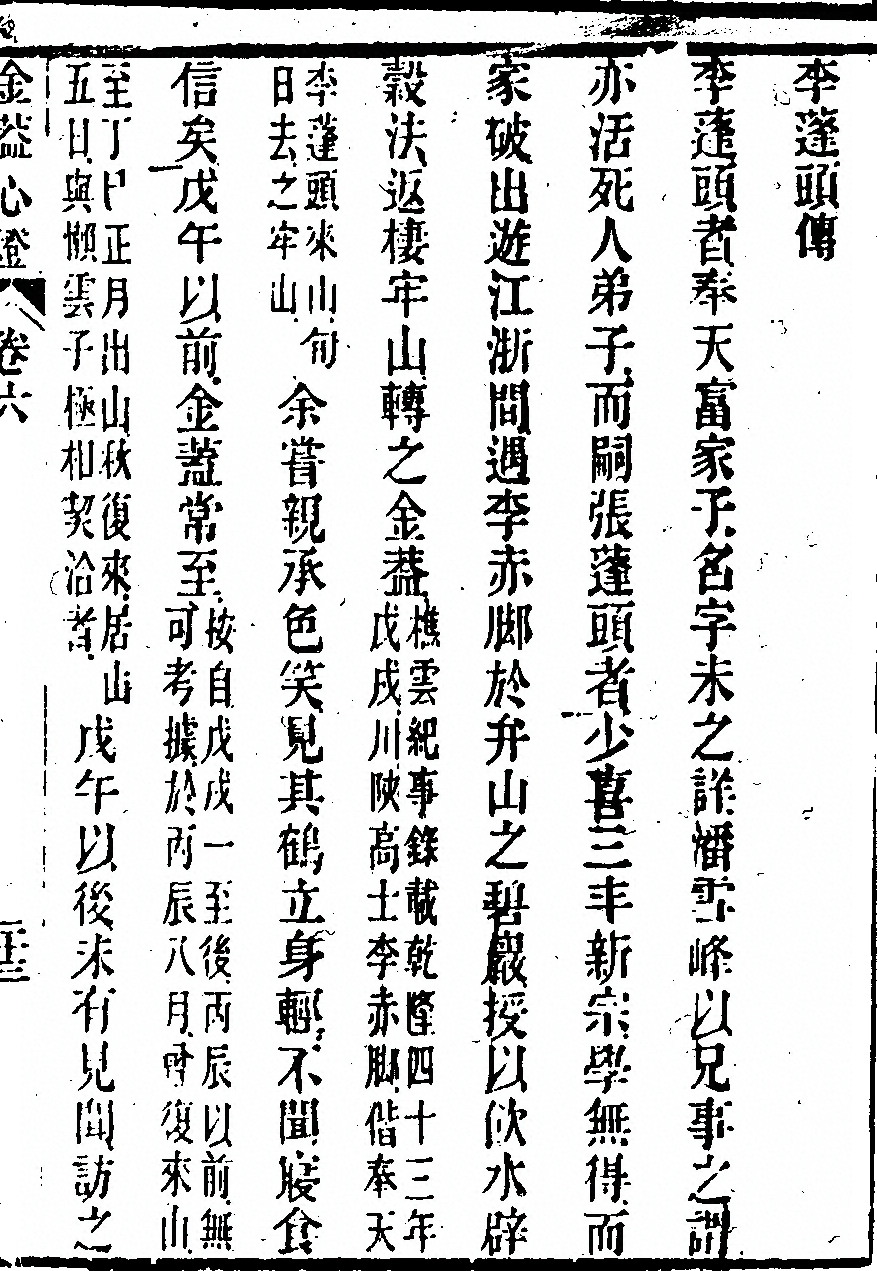 李蓬頭傳
李蓬頭者奉天富家子名字未之詳潘雪峰以兄事之謂
亦活死人弟子而嗣張蓬頭者少喜三丰新宗學無得而
家破出遊江浙間遇李赤脚於弁山之碧巖授以飲水辟
穀法返棲牢山轉之金蓋樵雲紀事錄載乾隆四十三年
戊戌川陝高士李赤脚偕奉天
李蓬頭來山旬
日去之牢山余嘗親承色笑見其鶴立身輕不聞寢食
信矣戊午以前金蓋常至按自戊戌一至後丙辰以前無
可考據於丙辰八月曾復來山
至丁巳正月出山秋復來居山
五日與懶雲子極相契洽者戊午以後未有見聞訪之
金蓋心燈 卷六